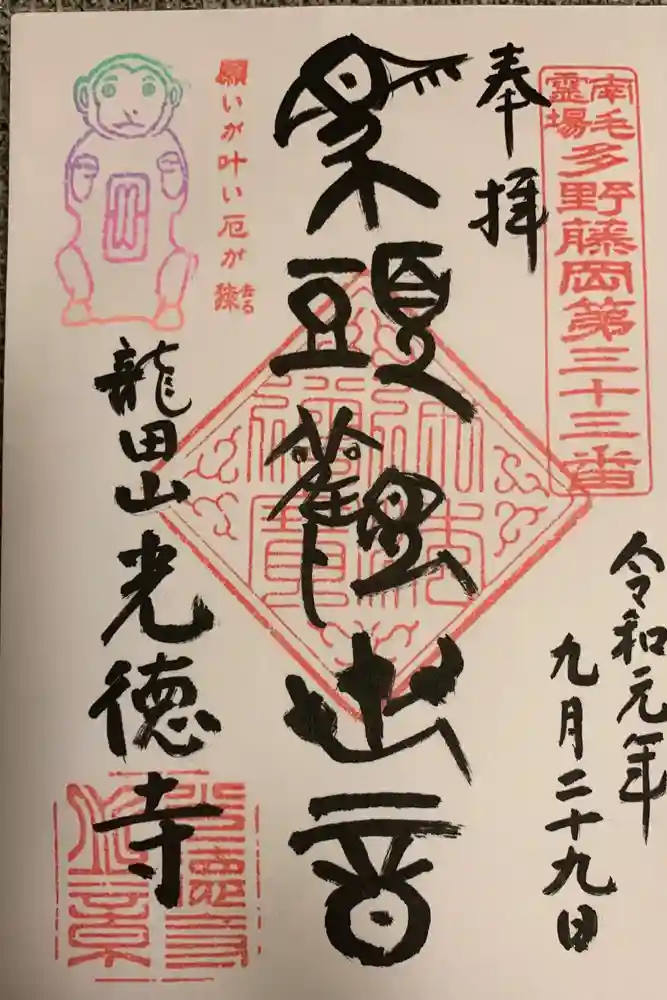 南毛靈場
多野藤岡第三十三番
奉拝
令和元年
九月二十九日
馬頭觀世音
願いが叶い厄が猿
去る
龍田山
光徳寺